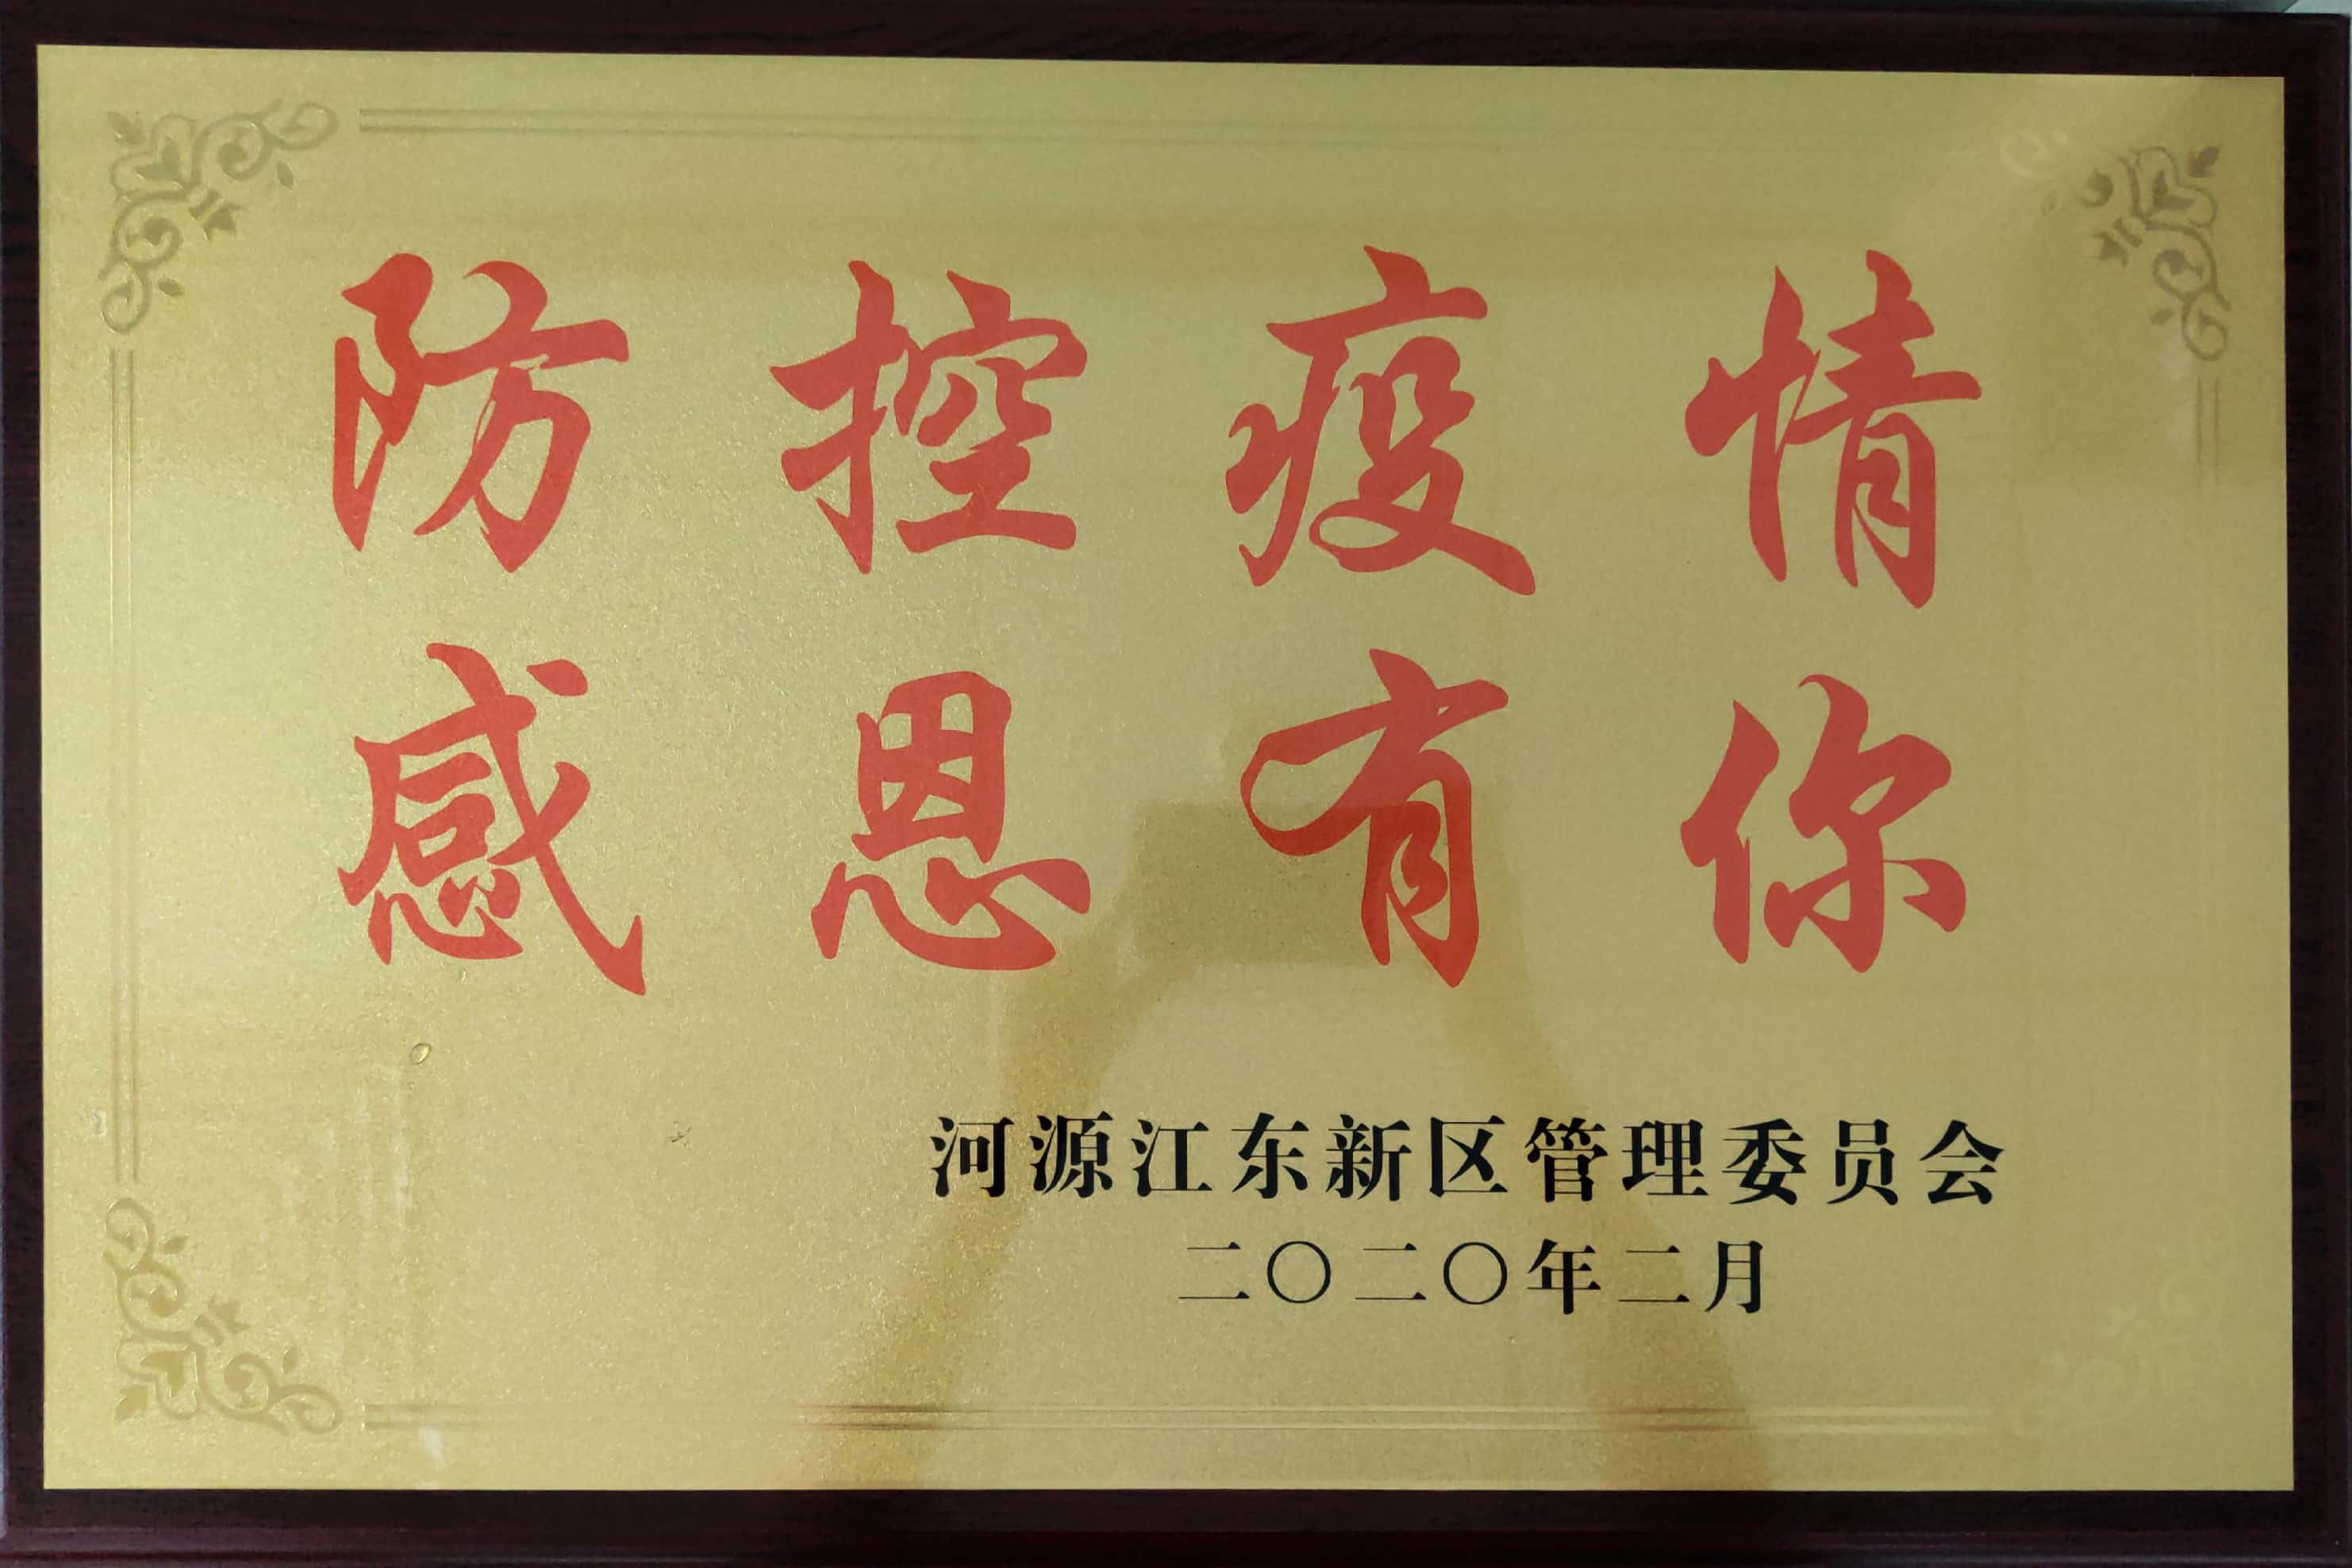 防控疫情
感恩有你
河源江东新区管理委员会
二〇二〇年二月